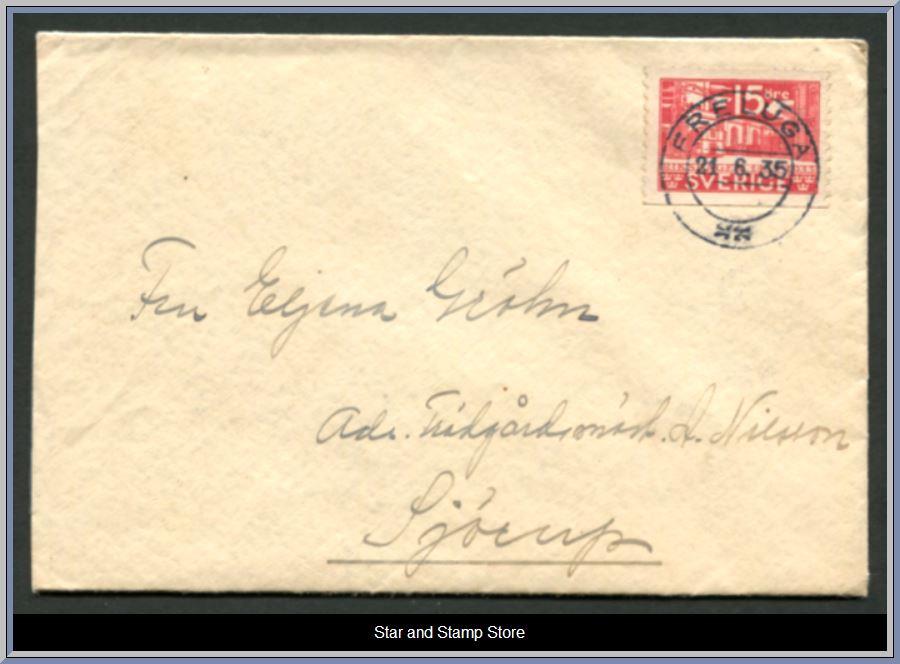 15 öre
ERFLUGA
21. 6. 35
SVERIGE
Fru Eljena Gröhn
Adr. Trädgårdsmäst. A. Nilsson
Sjörup
Star and Stamp Store